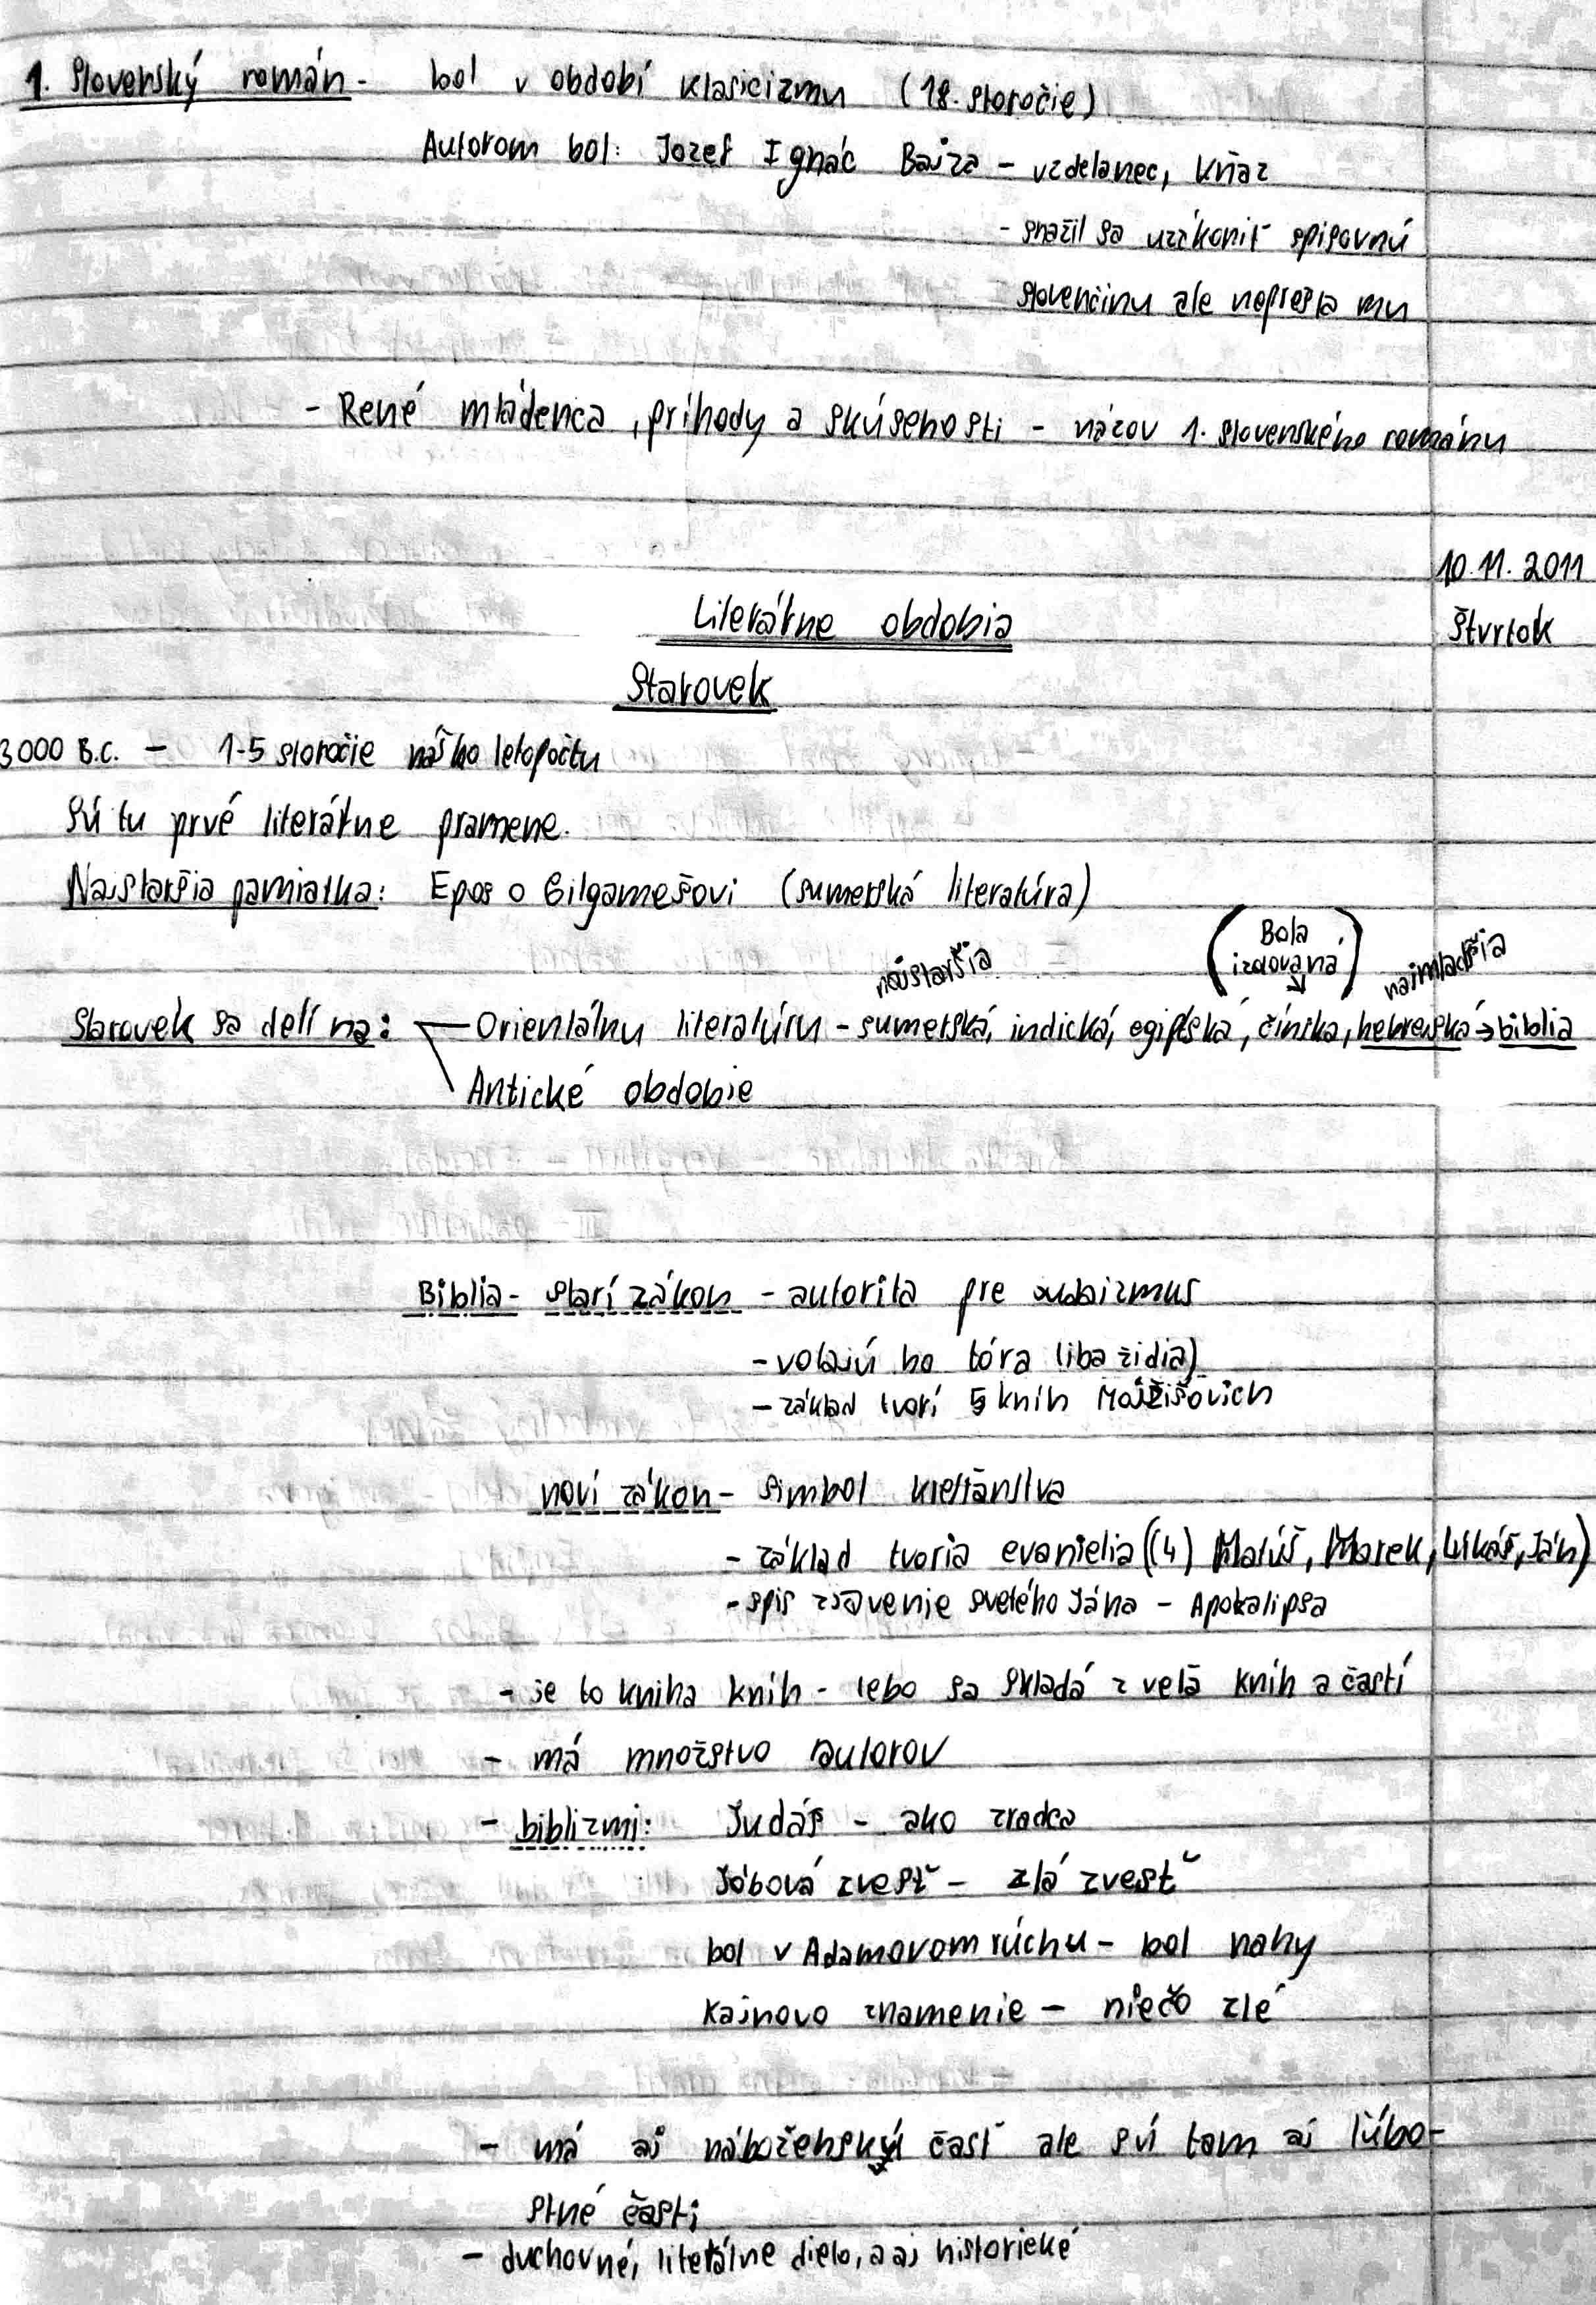 1. Slovenský román - bol v období klasicizmu (18. storočie)
Autorom bol: Jozef Ignác Bajza - vzdelanec, kňaz
- snažil sa uzákoniť spisovnú
slovenčinu ale neprešla mu
- René mládenca, príhody a skúsenosti - názov 1. slovenského románu
10.11.2011
Literárne obdobia
štvrtok
Starovek
3000 B.C. - 1-5 storočie nášho letopočtu
Sú tu prvé literárne pramene.
Najstaršia pamiatka: Epos o Gilgamešovi (sumerská literatúra)
(Bola
izolovaná)
najstaršia
najmladšia
Starovek sa delí na: Orientálnu literatúru - sumerská, indická, egiptská, čínska, hebrejská → biblia
Antické obdobie
Biblia - starí zákon - autorita pre judaizmus
- volajú ho tóra (iba židia)
- základ tvorí 5 kníh Mojžišovich
noví zákon - simbol kresťánstva
- základ tvoria evanielia ((4) Matúš, Marek, Lukáš, Ján)
- spis zjavenie svetého Jána - Apokalipsa
- je to kniha kníh - lebo sa skladá z veľa kníh a častí
- má množstvo autorov
- biblizmi: Judáš - ako zradca
Jóbová zvesť - zlá zvesť
bol v Adamovom rúchu - bol nahy
Kajnovo znamenie - niečo zlé
- má aj náboženskú časť ale sú tam aj ľúbo-
stné časti
- duchovné, literálne dielo, a aj historické